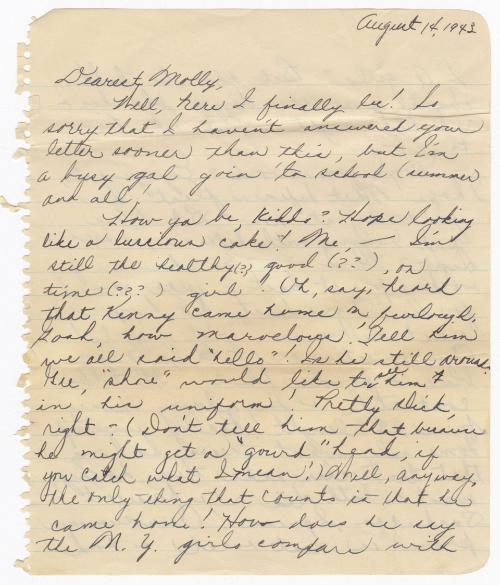 August 14, 1943
Dearest Molly,
Well, here I finally be! So
sorry that I haven't answered your
letter sooner than this, but I'm
a busy gal goin' to school (summer
and all)
How ya be, Kiddo? Hope looking
like a luscious cake! Me, — I'm
still the healthy(?), good (??), on
time (???) girl. Oh, say, heard
that Kenny came home on furlough.
Gosh, how marvelous! Tell him
we all said "hello"! Is he still around?
Gee, "shore" would like to see him
in his uniform! Pretty slick,
right? (Don't tell him that because
he might get a "gourd" head, if
you catch what I mean!) Well, anyway,
the only thing that counts is that he
came home! How does he say
the N. Y. girls compare with